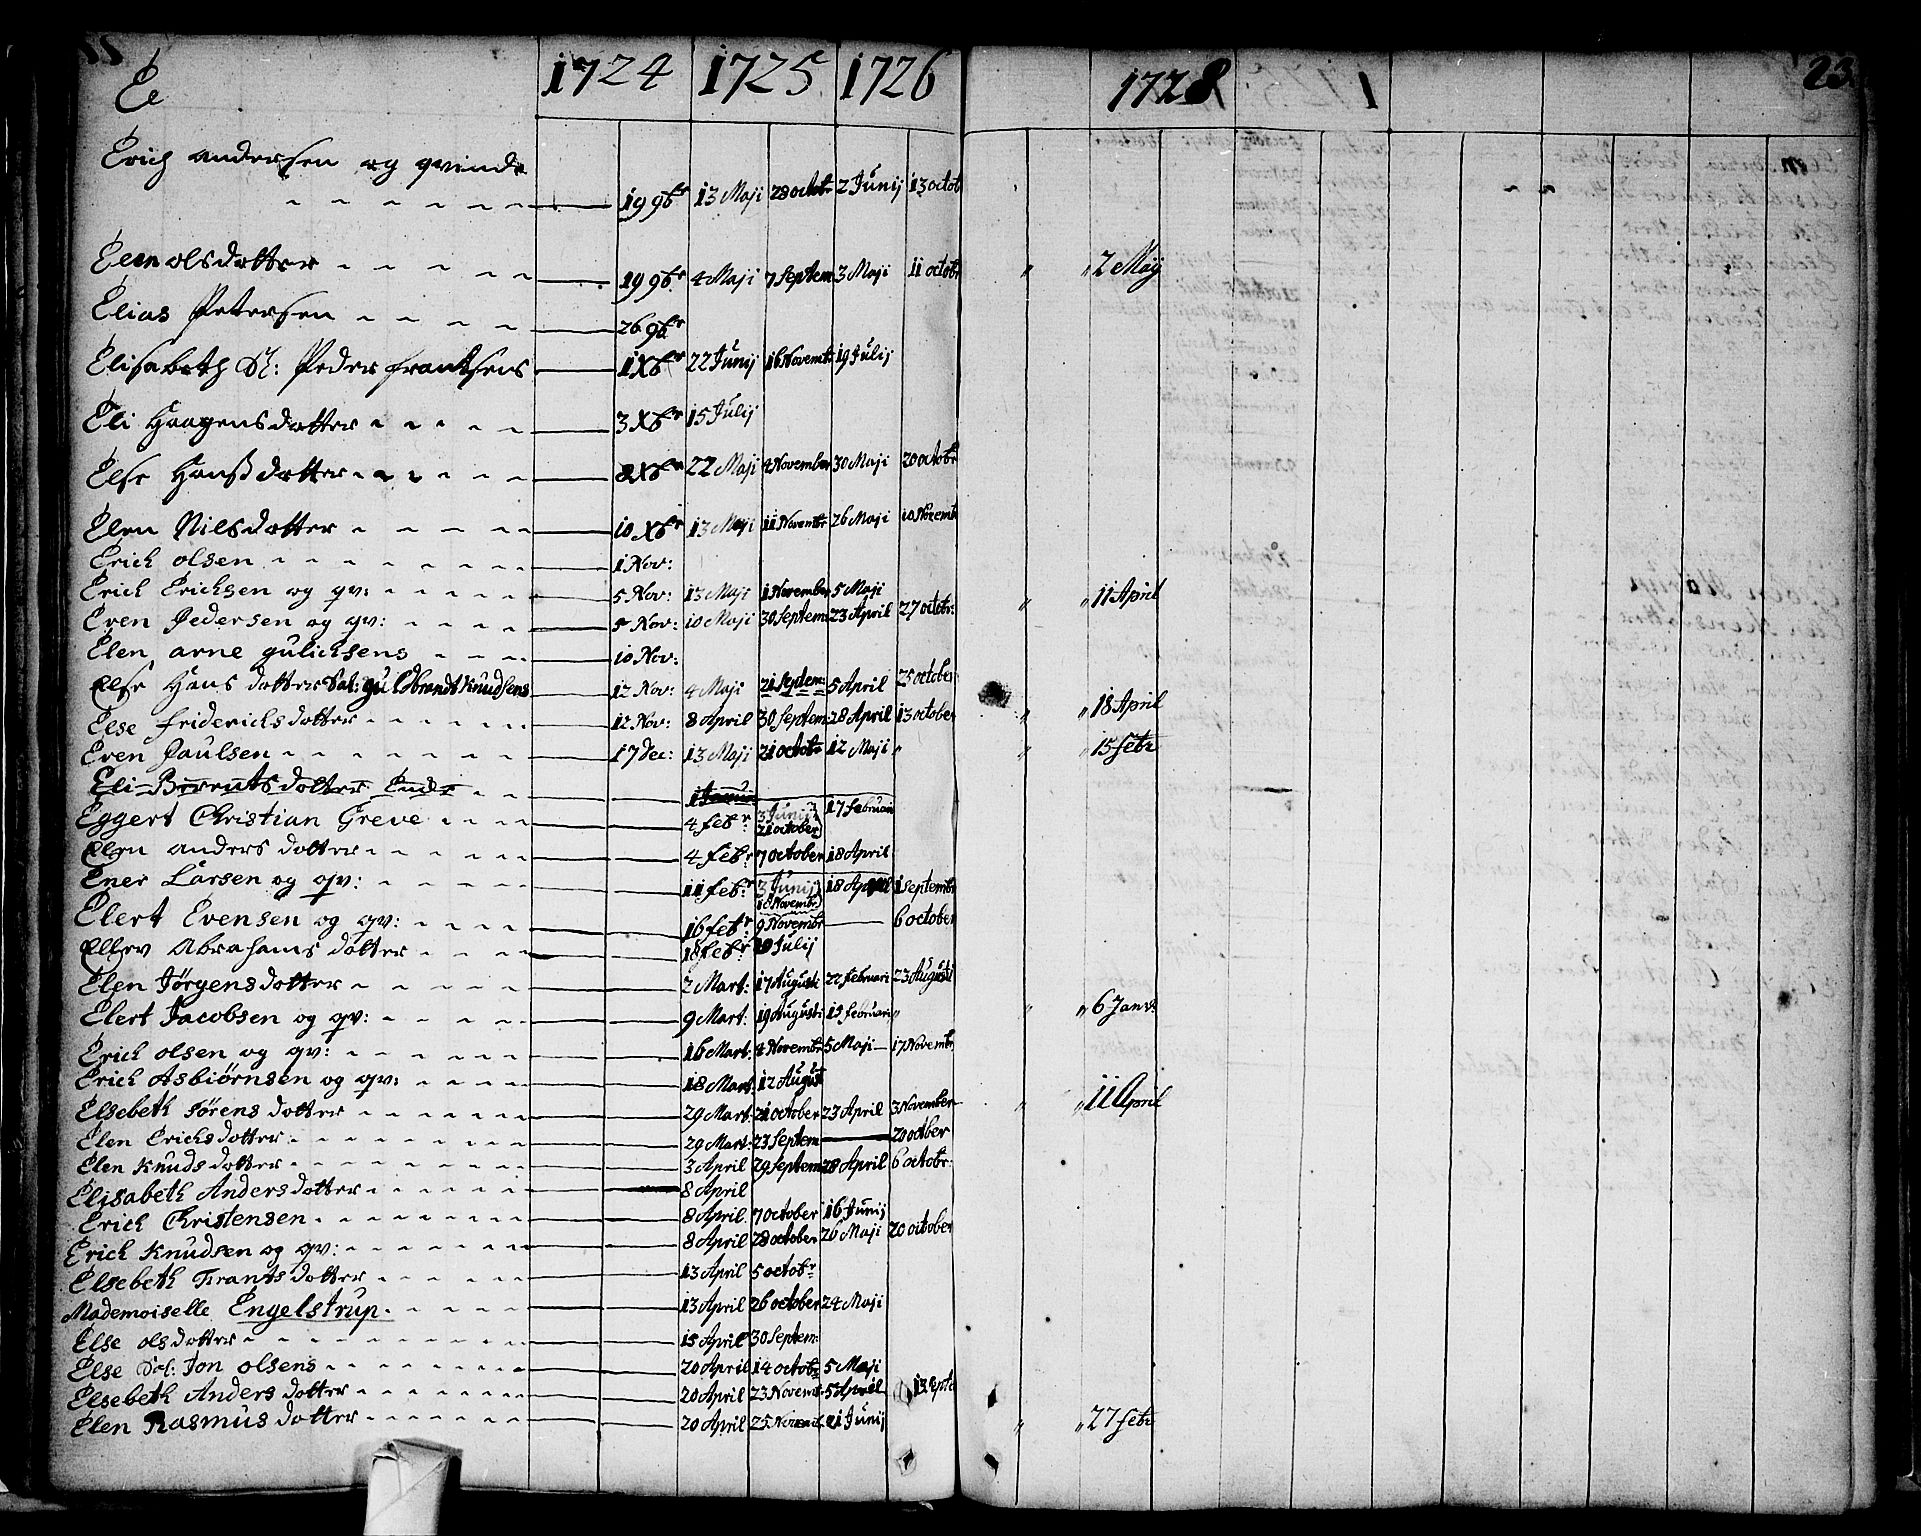 E 1724 1725 1726 1728 1 23
Erich andersen og qvinde
19 9br 13 Maji 28 octobr 2 Junij 13 octob
Elen olsdatter 19 9br 4 Maji 7 Septem 3 Maji 11 octobr " " 2 Maij
Elias Petersen 26 9br
Elisabeth Sl: Peder frantsens 1 Xbr 22 Junij 16 Novembr 19 Julij
Eli Haagensdatter 3 Xbr 15 Julij
Else Hanssdatter 8 Xbr 22 Maji 4 November 30 Maji 20 octobr
Elen Nilsdatter 10 Xbr 13 Maji 11 Novembr 26 Maji 10 Novemb
Erich olsen 1 Nov:
Erich Erichsen og qv: 5 Nov: 13 Maji 1 November 5 Maji " " 11 April
Even Pedersen og qv: 5 Nov: 10 Maji 30 Septem: 23 April 27 octobr:
Elen arne gulichsens 10 Nov:
Else Hans datter Sal: guldbrandt Knudsens 12 Nov: 4 Maji 21 Septem: 5 April 25 october
Else friderichsdatter 12 Nov: 8 April 30 Septem: 28 April 13 october " " 18 April
Even Paulsen 17 Dec: 13 Maji 21 octobr 12 Maji " " " 15 febr
Eli Berentsdatter Ende 1 Janua
Eggert Christian Greve 4 febr: 3 Junij 21 october 17 februari
Elen anders datter 4 febr: 7 october 18 April
Ener Larsen og qv: 11 febr: 3 Junij 18 Novembr 18 April 1 Septembr
Elert Evensen og qv: 16 febr 9 Novembr 6 october
Ellev Abrahams datter 18 febr 19 Julij
Elen Jørgensdatter 2 Mart: 17 Augusti 22 februari 23 Augusti
Elert Jacobsen og qv: 9 Mart: 19 Augusti 15 februari " " " 6 Janv:
Erich olsen og qv: 16 Mart: 4 Novembr 5 Maji 17 Novembr
Erich Asbiørnsen og qv: 18 Mart: 12 August
Elsebeth Sørens datter 29 Mart: 21 october 23 April 3 November " " 11 April
Elen Erichsdatter 29 Mart: 23 Septem 20 october
Elen Knuds datter 3 April 29 Septem: 28 April 6 octobr:
Elisabeth Andersdatter 8 April
Erich Christensen 8 April 7 october 16 Junij
Erich Knudsen og qv: 8 April 28 october 26 Maji 20 october
Elsebeth Frantsdatter 13 April 5 octobr
Mademoiselle Engelstrup 13 April 26 october 24 Maji
Else olsdatter 15 April 30 Septem:
Else Sal: Jon olsens 20 April 14 octobr 5 Maji
Elsebeth Anders datter 20 April 23 Novemr 5 April 1 Septe
Elen Rasmus datter 20 April 25 Novemb 21 Junij " " 27 febr